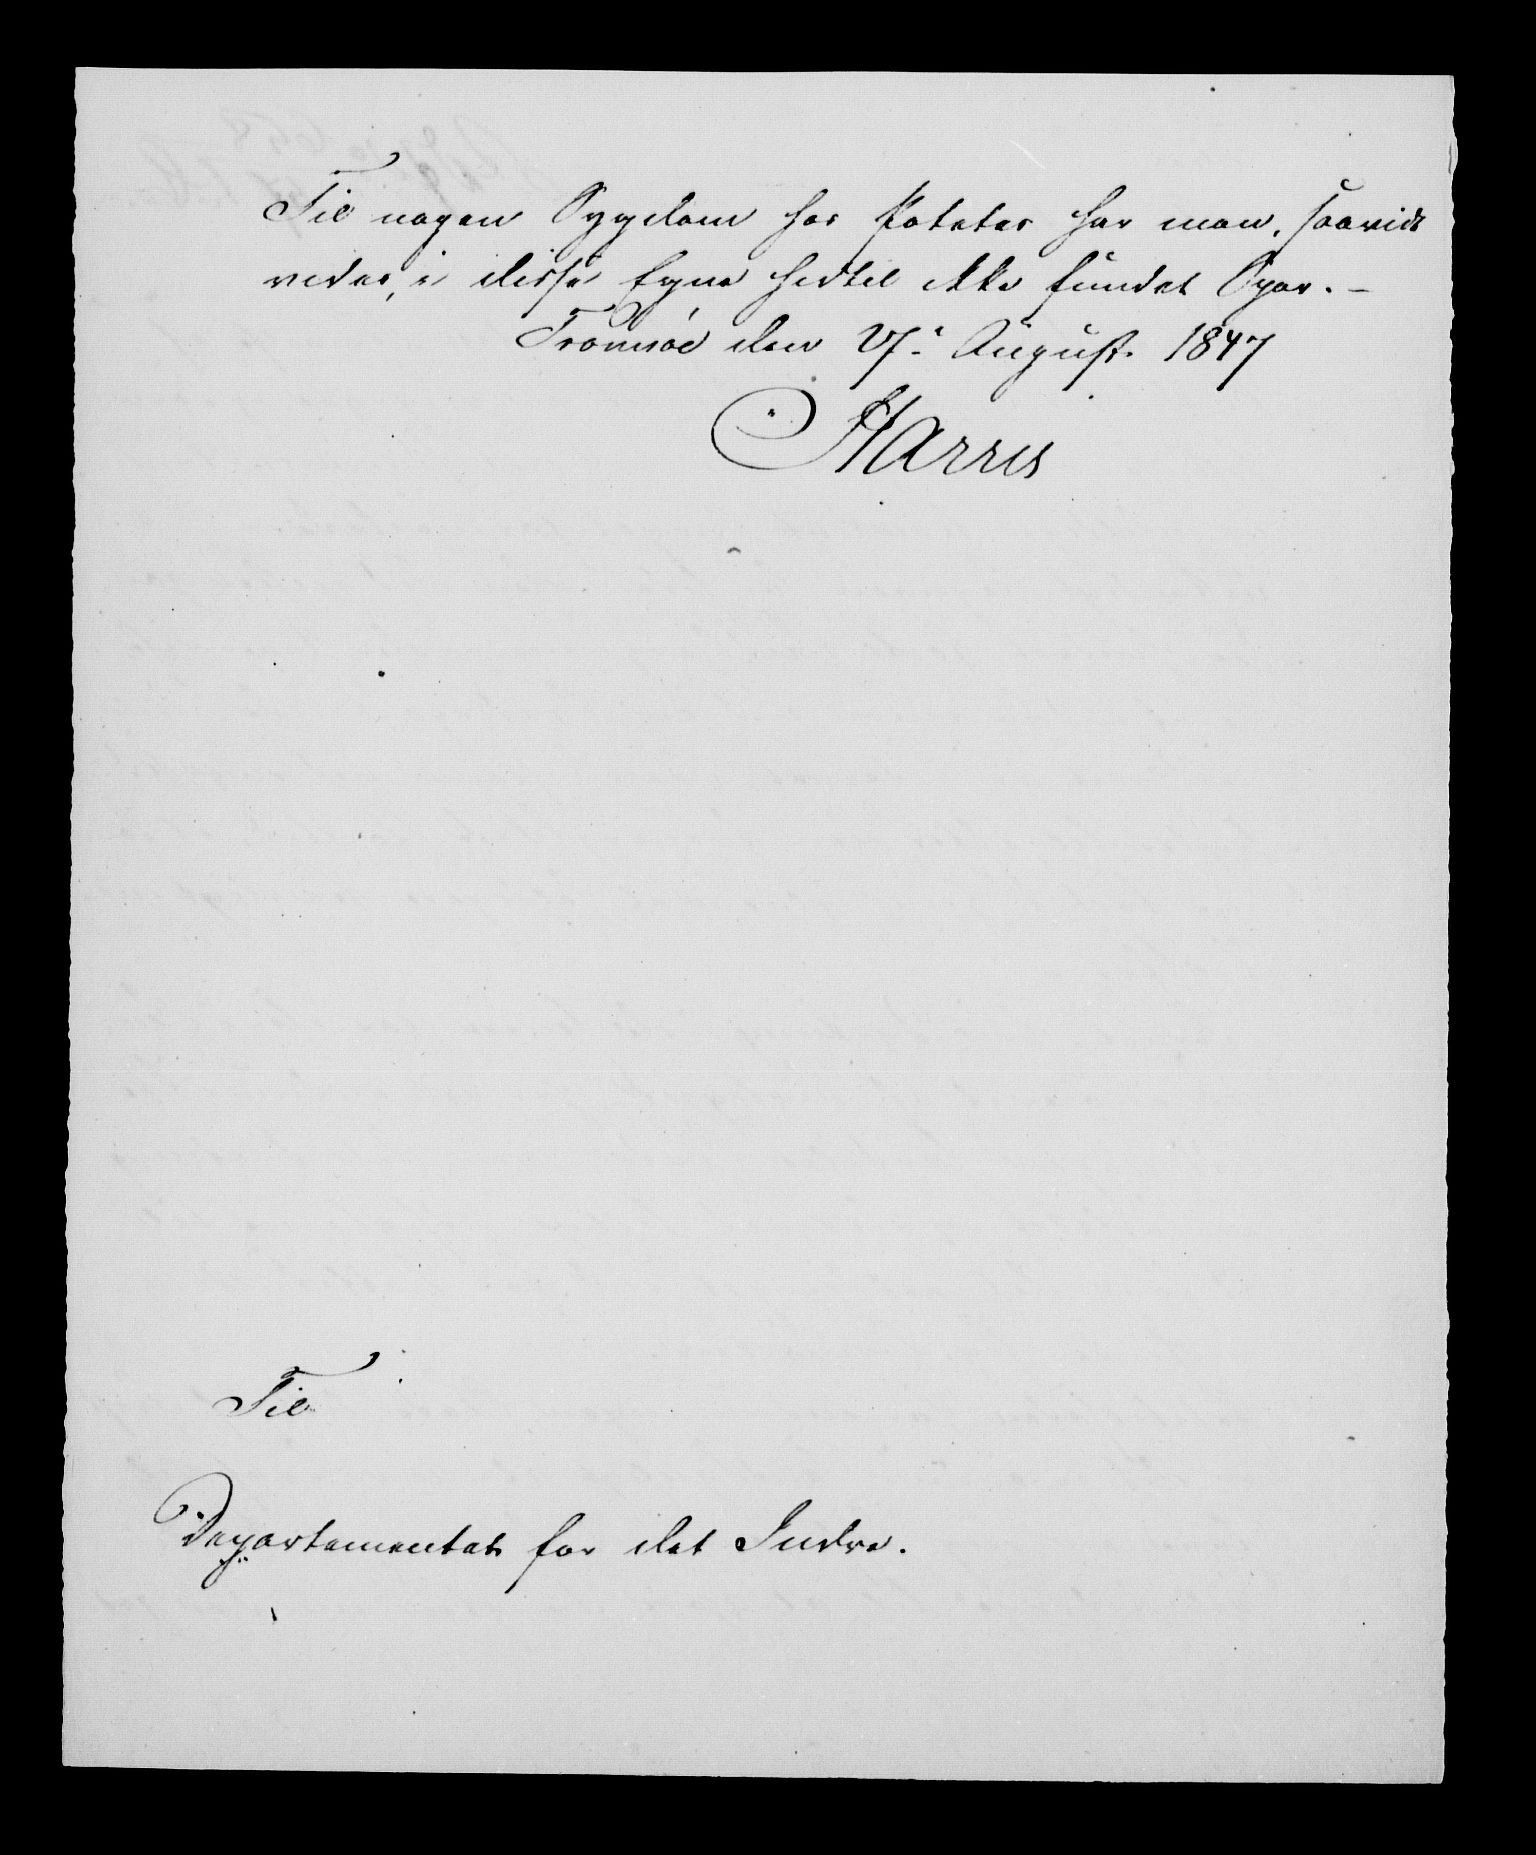 Til nogen Sygdom hos Potetes har man, saavidt
vides, i disse Egne hidtil ikke fundet Spor. –
Tromsøe den 27. August 1847
Harris
Til
Departementet for det Indre.